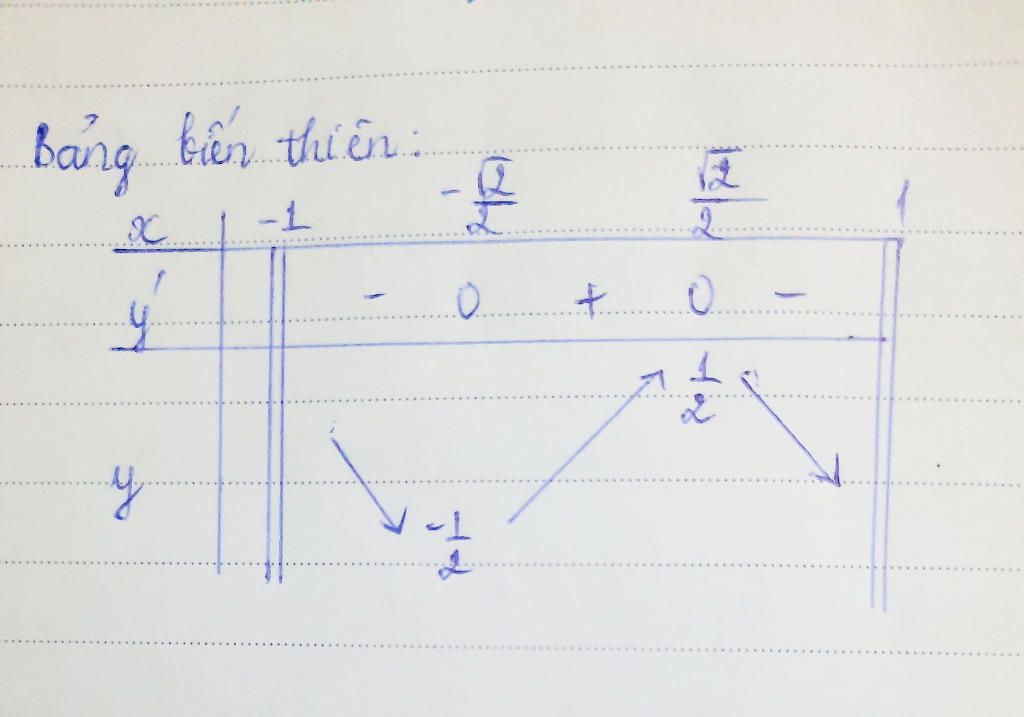 Bảng biến thiên:
x -1 -√2/2 √2/2 1
y' - 0 + 0 -
y -1/2 1/2